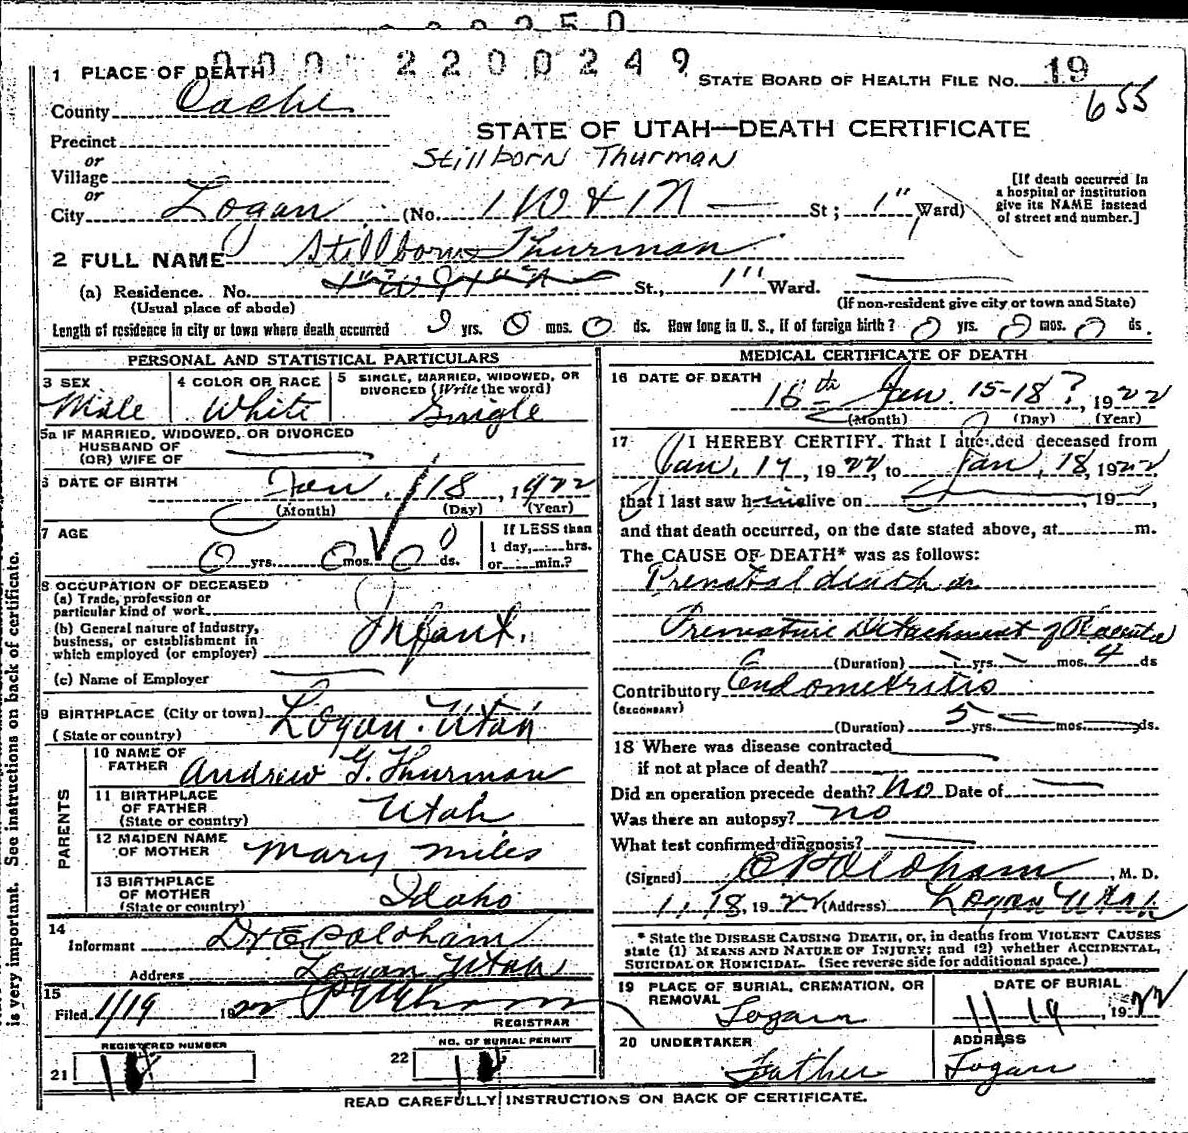 000 2200249
1 PLACE OF DEATH
STATE BOARD OF HEALTH FILE No. 19
655
County Cache
STATE OF UTAH—DEATH CERTIFICATE
Precinct
Stillborn Thurman
or
Village
or
City Logan (No. 1 W & 1 N — St; 1" Ward)
[If death occurred in a hospital or institution give its NAME instead of street and number.]
2 FULL NAME Stillborn Thurman
(a) Residence. No. St., 1" Ward.
(Usual place of abode) (If non-resident give city or town and State)
Length of residence in city or town where death occurred 0 yrs. 0 mos. 0 ds. How long in U. S., if of foreign birth? 0 yrs. 0 mos. 0 ds.
PERSONAL AND STATISTICAL PARTICULARS
3 SEX Male
4 COLOR OR RACE White
5 SINGLE, MARRIED, WIDOWED, OR DIVORCED (Write the word) Single
5a IF MARRIED, WIDOWED, OR DIVORCED
HUSBAND OF
(OR) WIFE OF
6 DATE OF BIRTH Jan. 18, 1922
(Month) (Day) (Year)
7 AGE 0 yrs. 0 mos. 0 ds.
If LESS than 1 day, hrs. or min.?
8 OCCUPATION OF DECEASED
(a) Trade, profession or particular kind of work
(b) General nature of industry, business, or establishment in which employed (or employer)
Infant.
(c) Name of Employer
9 BIRTHPLACE (City or town) Logan. Utah
(State or country)
PARENTS
10 NAME OF FATHER Andrew G. Thurman
11 BIRTHPLACE OF FATHER (State or country) Utah
12 MAIDEN NAME OF MOTHER Mary Miles
13 BIRTHPLACE OF MOTHER (State or country) Idaho
14
Informant Dr E P Oldham
Address Logan Utah
15
Filed 1/19 1922
REGISTRAR
REGISTERED NUMBER
21
NO. OF BURIAL PERMIT
22
MEDICAL CERTIFICATE OF DEATH
16 DATE OF DEATH 16th Jan. 15-18?, 1922
(Month) (Day) (Year)
17 I HEREBY CERTIFY, That I attended deceased from
Jan. 17, 1922, to Jan, 18, 1922
that I last saw h im alive on 19 ,
and that death occurred, on the date stated above, at m.
The CAUSE OF DEATH* was as follows:
Prenatal death
Premature Detachment of Placenta
(Duration) yrs. mos. 4 ds
Contributory Endometritis
(SECONDARY)
(Duration) 5 yrs mos. ds.
18 Where was disease contracted
if not at place of death?
Did an operation precede death? No Date of
Was there an autopsy? no
What test confirmed diagnosis?
(Signed) E P Oldham, M. D.
1, 18, 1922 (Address) Logan Utah
* State the DISEASE CAUSING DEATH, or, in deaths from VIOLENT CAUSES state (1) MEANS AND NATURE OF INJURY; and (2) whether ACCIDENTAL, SUICIDAL OR HOMICIDAL. (See reverse side for additional space.)
19 PLACE OF BURIAL, CREMATION, OR REMOVAL Logan
DATE OF BURIAL 1/19, 1922
20 UNDERTAKER Father
ADDRESS Logan
READ CAREFULLY INSTRUCTIONS ON BACK OF CERTIFICATE.
is very important. See instructions on back of certificate.